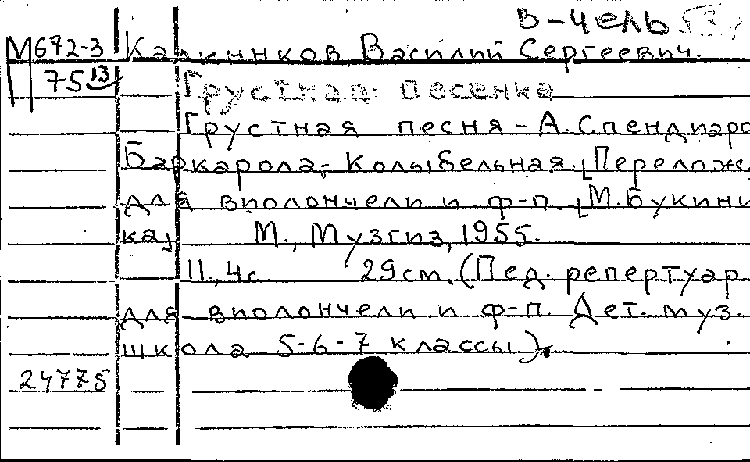 В-чель
М672-3 Калинников Василий Сергеевич.
75 13 Грустная песенка
Грустная песня - А.Спендиаро
Баркарола, Колыбельная. [Перелож.
для виолончели и ф-п. [М.Букини
ка] М., Музгиз, 1955.
11, 4 с. 29см. (Пед. репертуар
для виолончели и ф-п. Дет. муз.
школа 5-6-7 классы).
24775